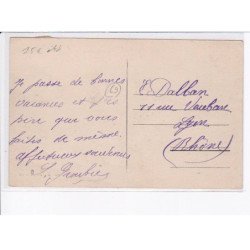 Je passe de bonnes
vacances et j'es
père que vous
faites de même.
affectueux souvenirs
E. Dalban
11 rue Vauban
Lyon
(Rhône)